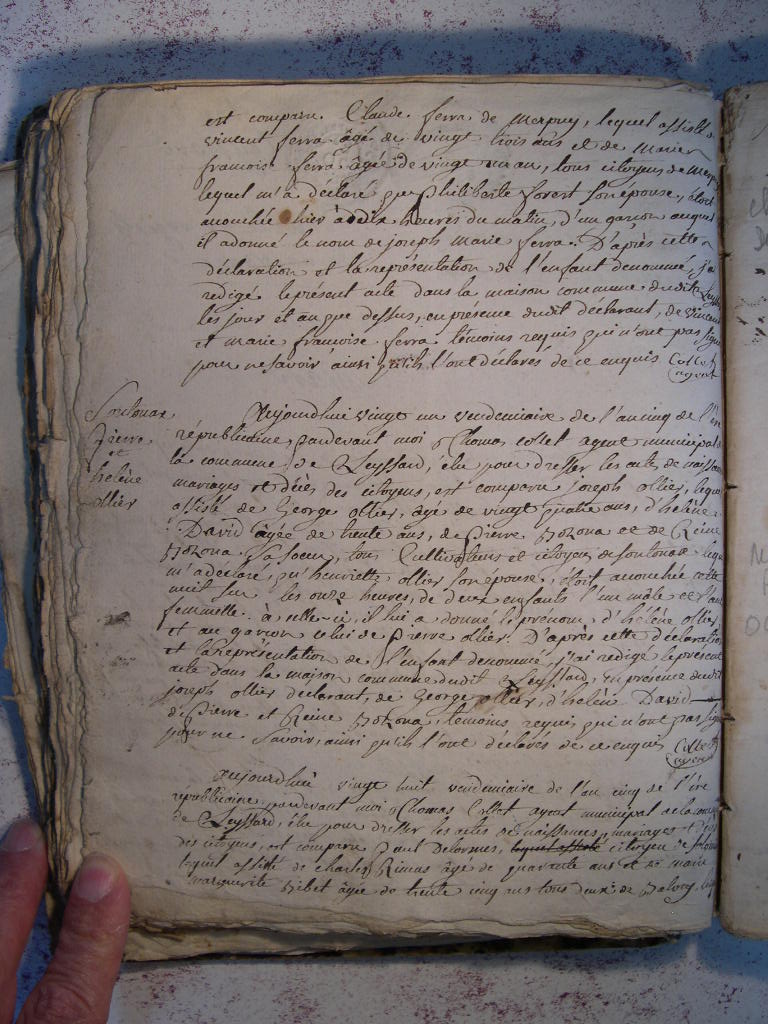 est comparu Claude ferra de Merpuy, lequel assisté de
vincent ferra âgé de vingt trois ans et de Marie
francoise ferra âgée de vingt un an, tous citoyens de Merpuy
lequel m'a déclaré que philiberte forest son épouse, étoit
accouchée hier à dix heures du matin, d'un garçon auquel
il a donné le nom de joseph marie ferra. D'après cette
déclaration et la représentation de l'enfant denommé, j'ai
redigé le présent acte dans la maison commune dudit Leyssard
les jour et an que dessus, en presence dudit déclarant, de vincent
et marie francoise ferra témoins requis qui n'ont pas signé
pour ne savoir ainsi qu'ils l'ont déclarés de ce enquis Collet
agent
Soulonax,
Pierre
et
hélène
ollier
Aujourdhui vingt un vendemiaire de l'an cinq de l'ère
républicaine, pardevant moi Thomas Collet agent municipal de
la commune de Leyssard, élu pour dresser les actes de naissances
mariages et décès des citoyens, est comparu joseph ollier, lequel
assisté de George ollier, âgé de vingt quatre ans, d'hélène
David âgée de trente ans, de pierre et de Reine
sa soeur, tous Cultivateurs et citoyens de lequel
m'a déclaré, qu'henriette ollier son épouse, étoit accouchée cette
nuit sur les onze heures, de deux enfants l'un male et l'autre
femmelle. à celle-ci, il lui a donné le prénom d'hélène ollier,
et au garcon celui de pierre ollier. D'après cette déclaration
et la représentation de l'enfant denommé, j'ai redigé le présent
acte dans la maison commune dudit Leyssard, en présence dudit
joseph ollier déclarant, de George ollier, d'hélène David
de Pierre et Reine témoins requis, qui n'ont pas signé
pour ne savoir, ainsi qu'ils l'ont déclarés de ce enquis Collet
agent
Aujourdhui vingt huit vendemiaire de l'an cinq de l'ère
républicaine, pardevant moi Thomas Collet agent municipal de la commune
de Leyssard, élu pour dresser les actes de naissances, mariages et décès
des citoyens, est comparu paul delormes, lequel assisté citoyen de
lequel assisté de charles Rimas âgé de quarante ans et de marie
marguerite âgée de trente cinq ans tous deux de